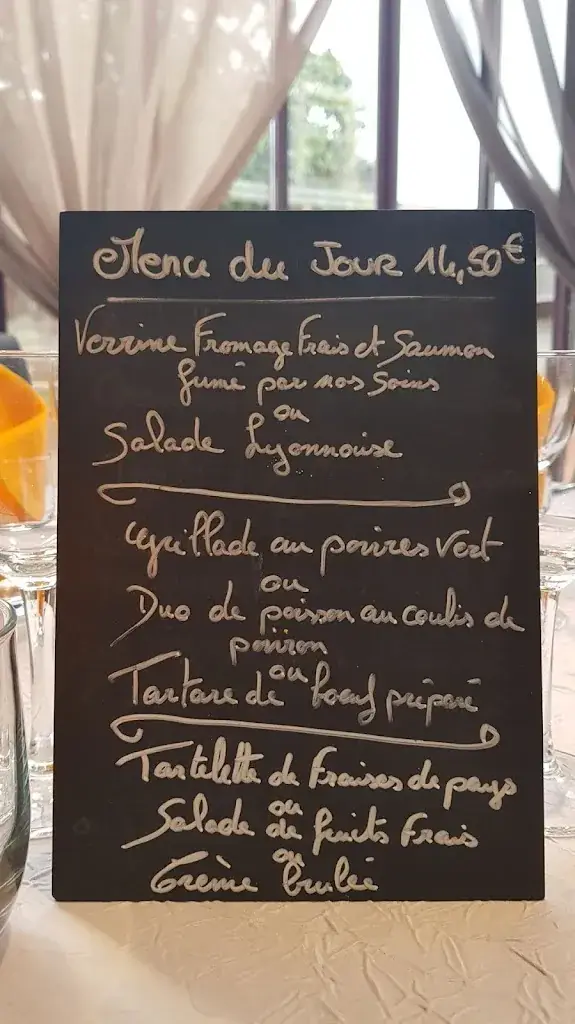 Menu du Jour 14,50€
Verrine Fromage Frais et Saumon
fumé par nos Soins
ou
Salade Lyonnaise
Grillade au poivres Vert
ou
Duo de poisson au coulis de
poivron
ou
Tartare de boeuf préparé
Tartelette de Fraises de pays
ou
Salade de fruits Frais
ou
Crème brulée